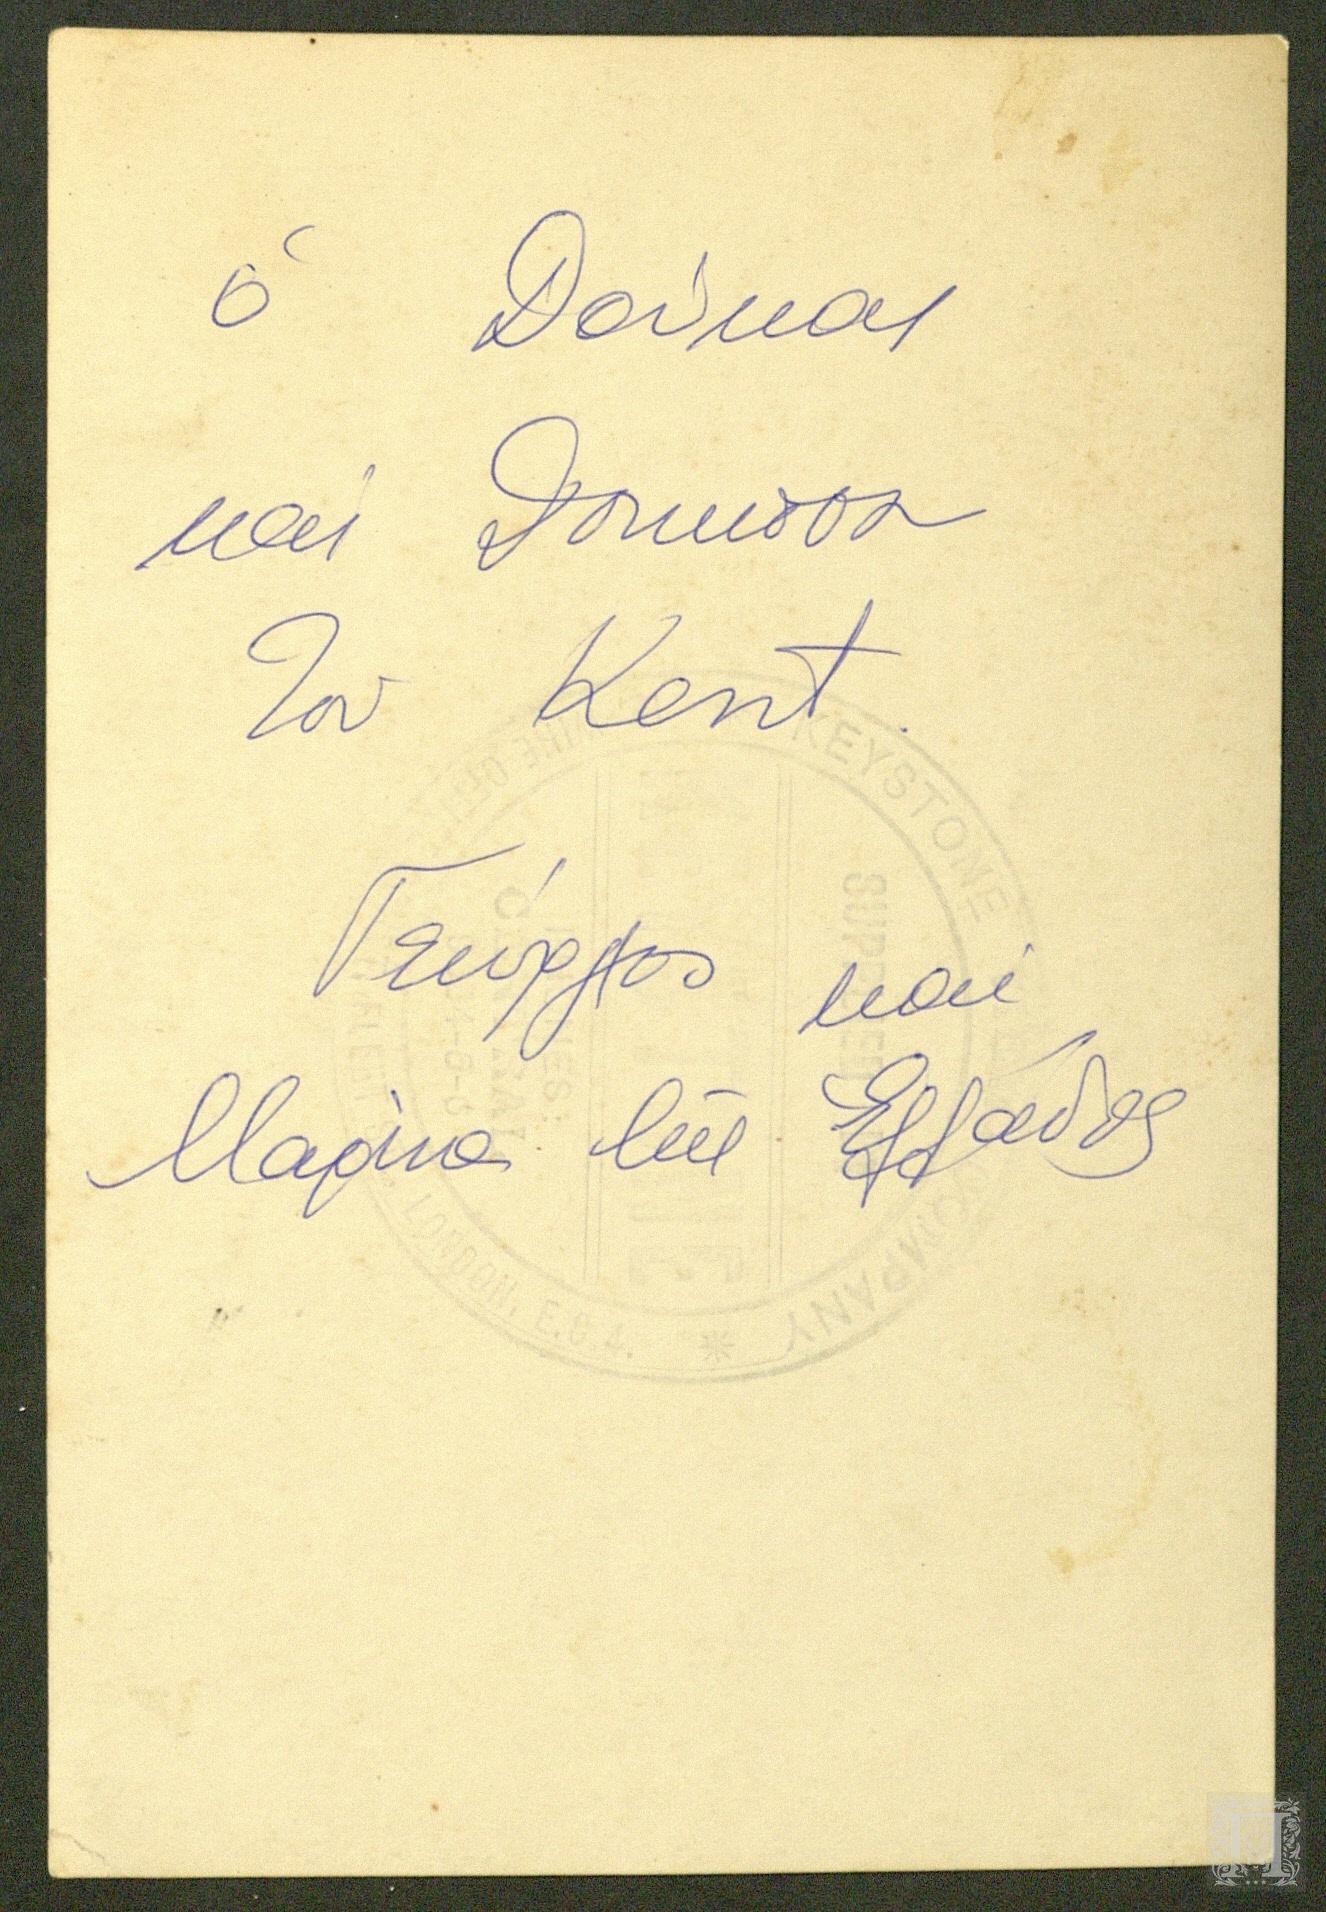 ὁ Δούκας
καί Δούκισσα
Του Kent.
Γεώργιος καί
Μαρίνα τῆς Ἑλλάδος
KEYSTONE
COMPANY
LONDON, E.C 4.